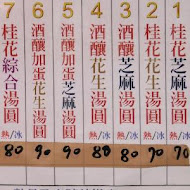 1 桂花芝麻湯圓 熱/冰 70
2 桂花花生湯圓 熱/冰 70
3 酒釀芝麻湯圓 熱/冰 80
4 酒釀花生湯圓 熱/冰 80
5 酒釀加蛋芝麻湯圓 熱/冰 90
6 酒釀加蛋花生湯圓 熱/冰 90
7 桂花綜合湯圓 熱/冰 80